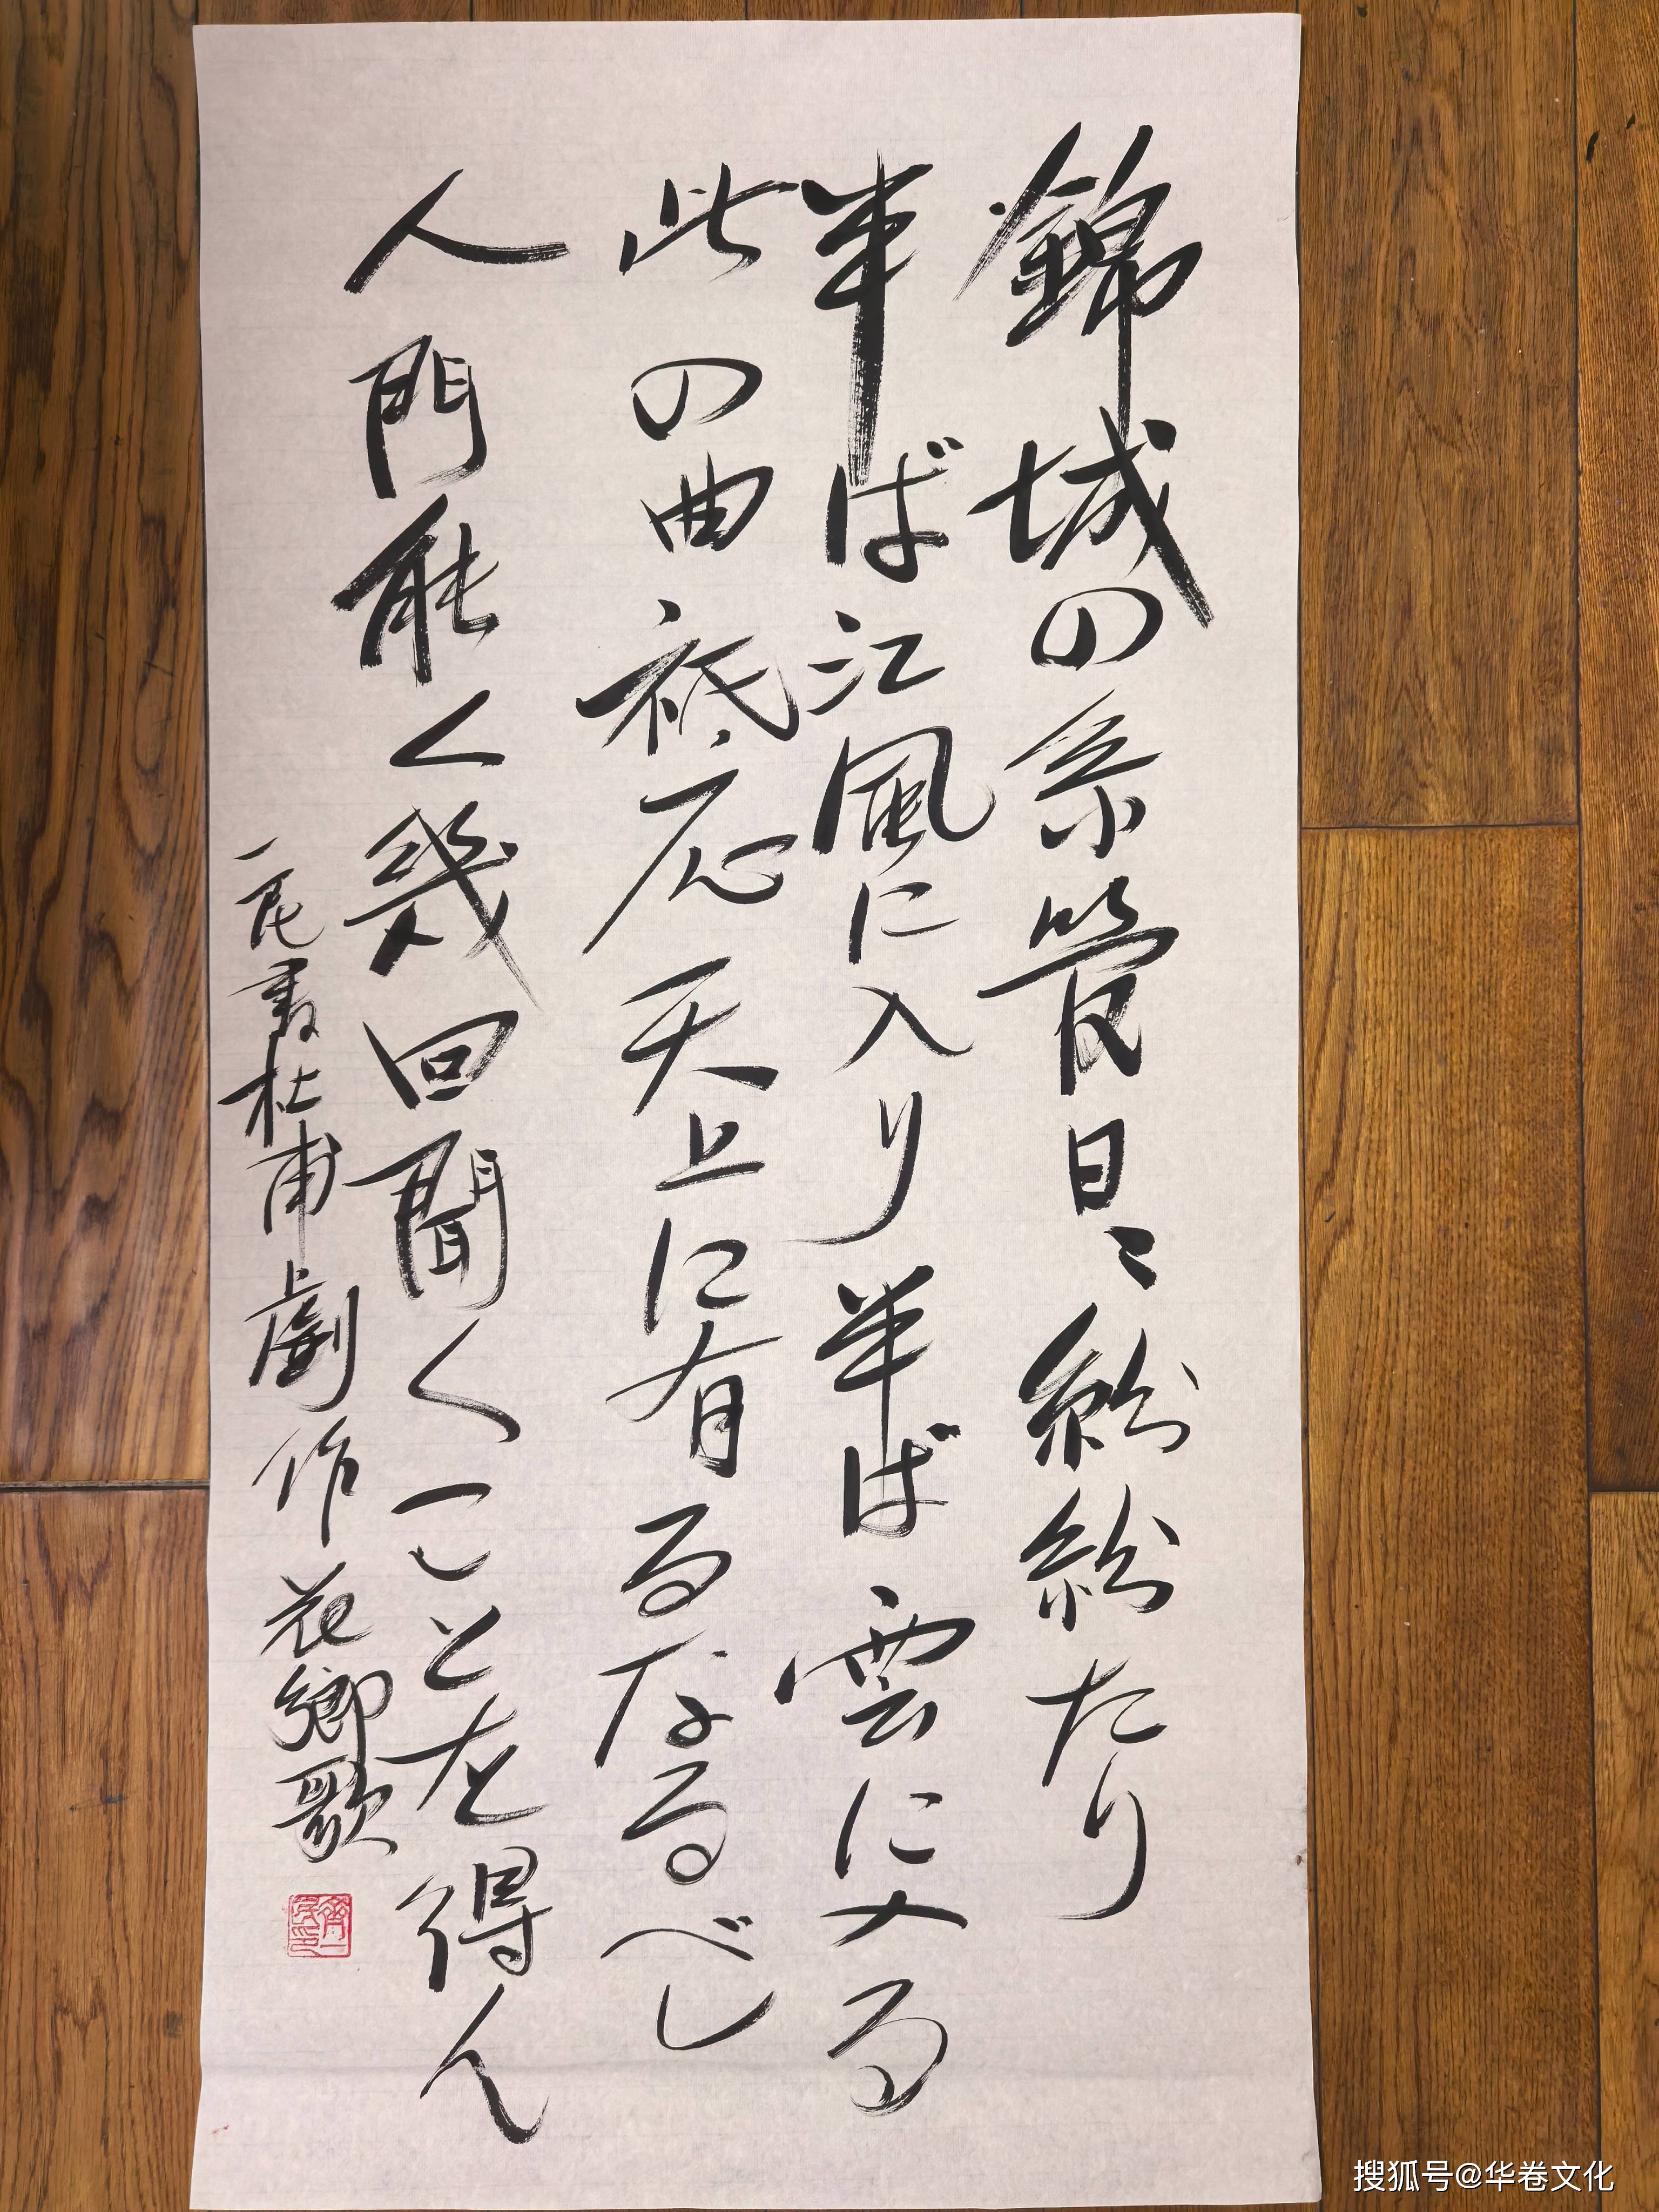 錦城の糸管日々紛紛たり
半ば江風に入り半ば雲に入る
此の曲祗応天上に有るなるべし
人間能く幾回聞くことを得ん
一民書杜甫劇作花卿歌
搜狐号@华卷文化